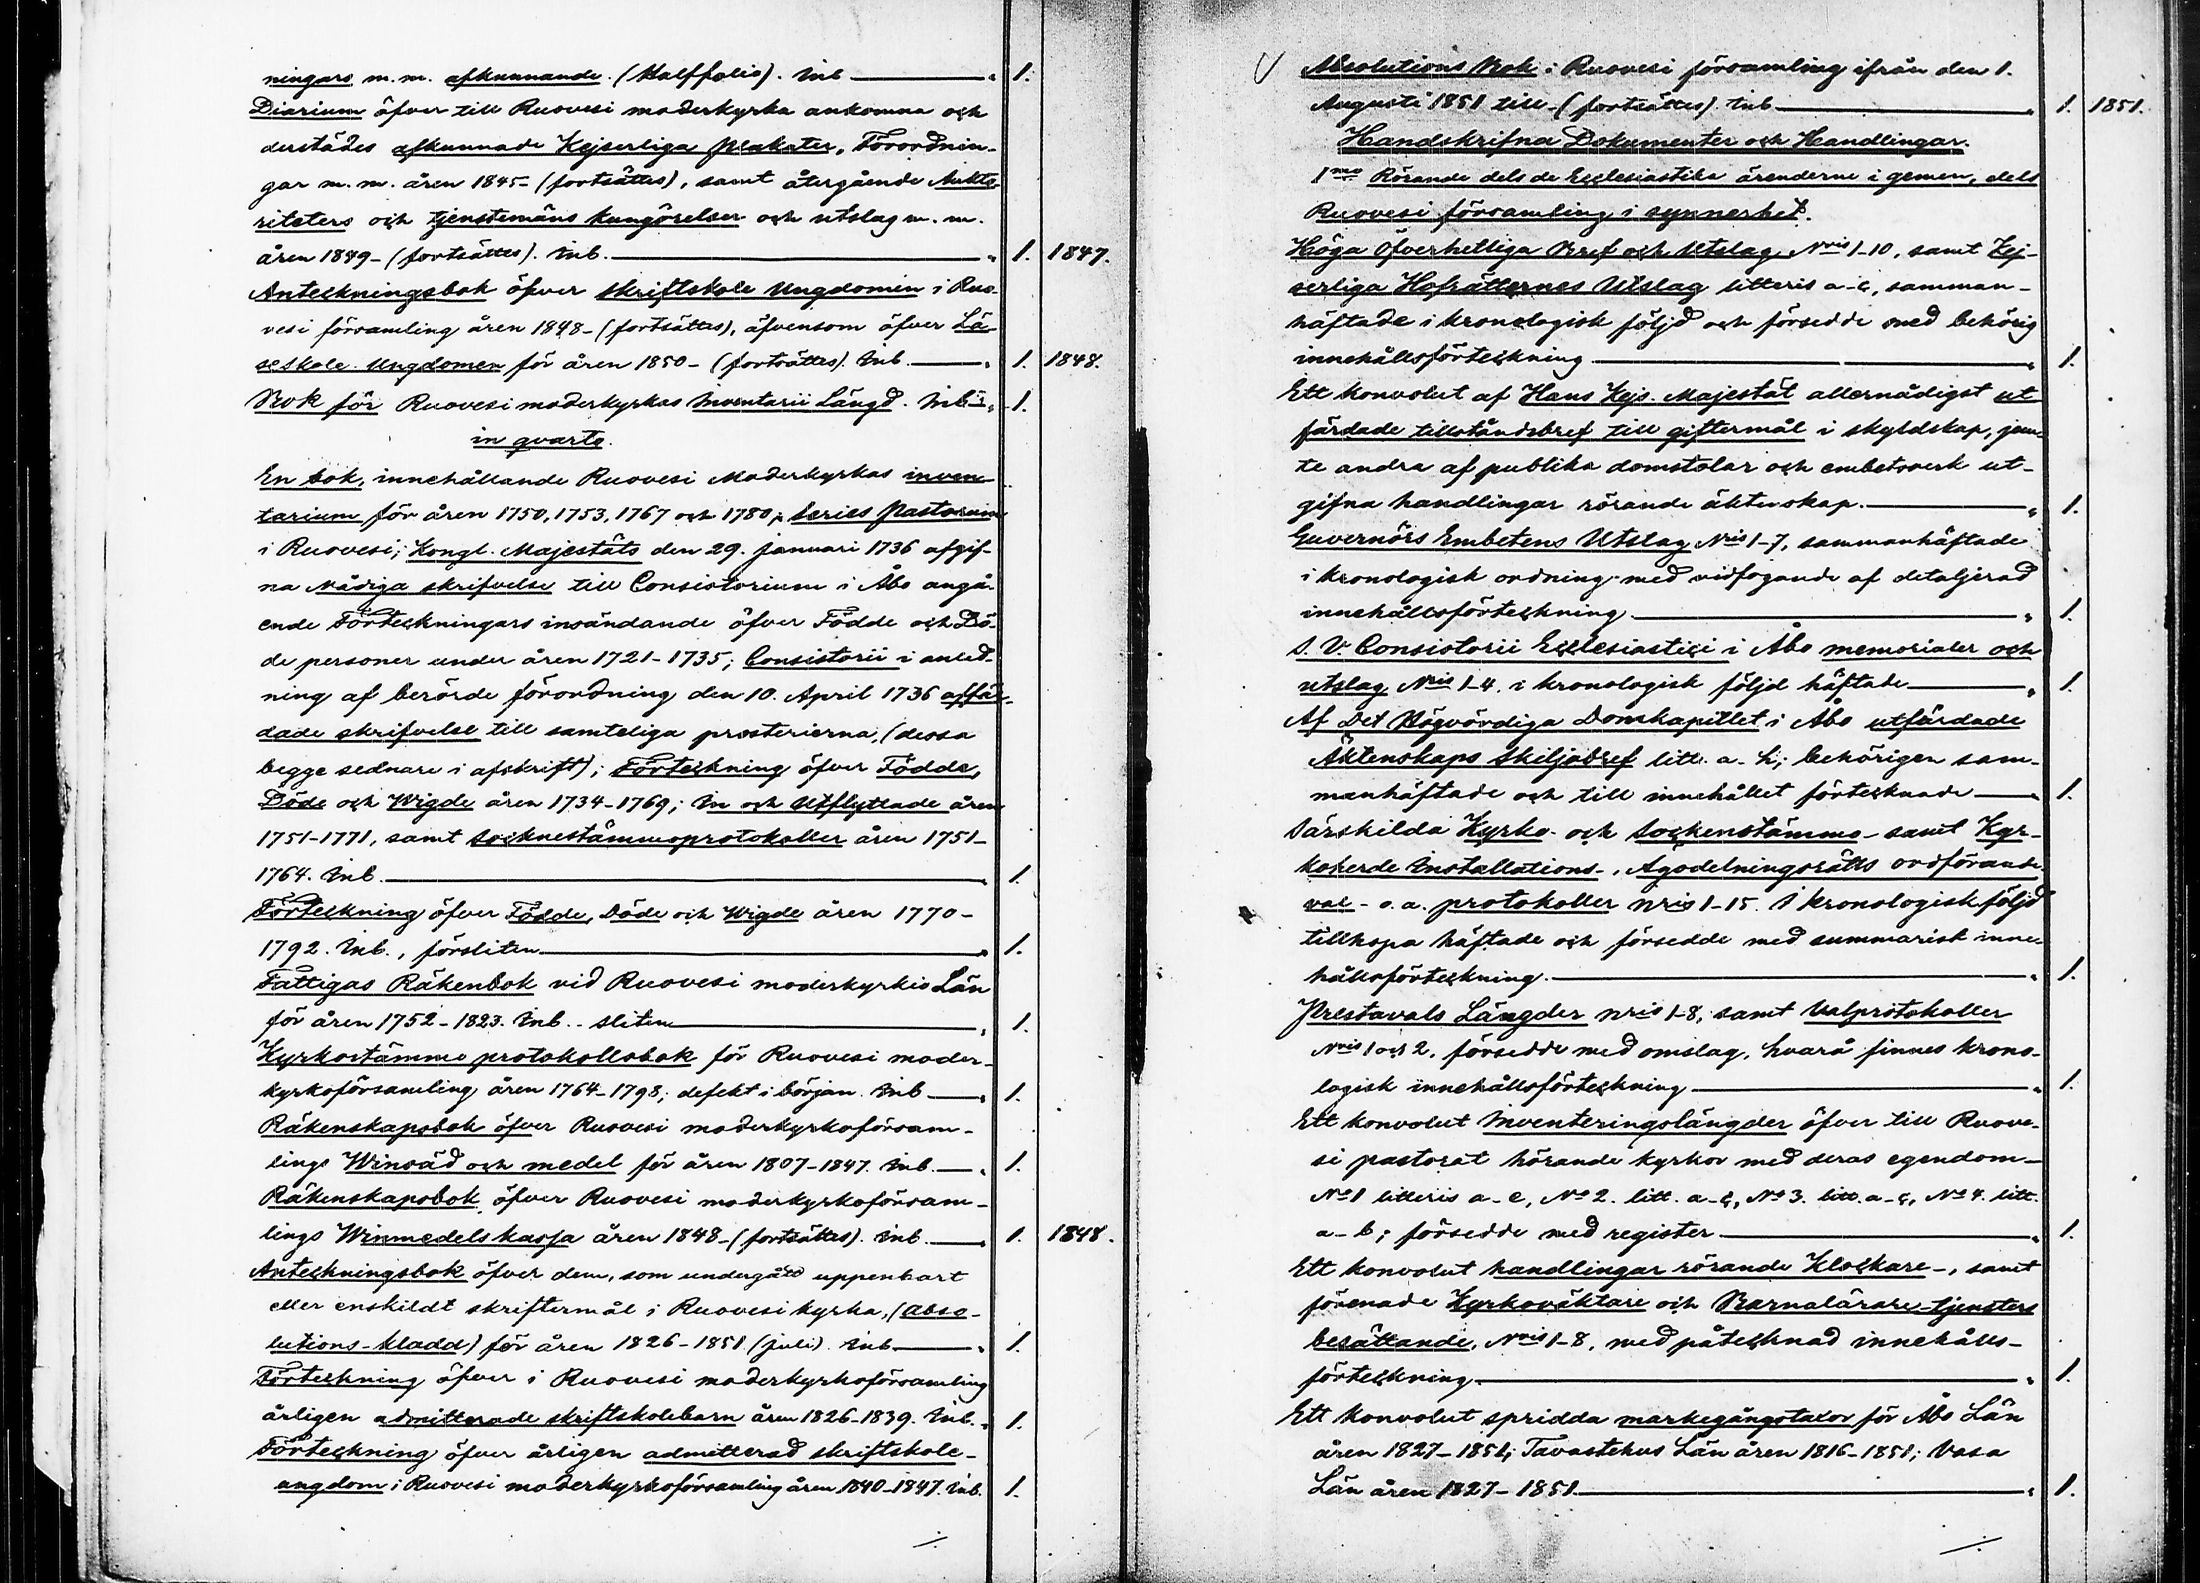 ningars m. m. afkunnande. (Halffolio). Inb — " 1.
Diarium öfver till Ruovesi moderkyrka ankomna och
derstädes afkunnade Kejserliga Plakater, Förordnin-
gar m. m. åren 1845- (fortsättes), samt återgående Aukto-
riteters och tjenstemäns kungörelser och utslag m. m.
åren 1849- (fortsättes). Inb. — " 1. 1847.
Anteckningsbok öfver Skriftskole Ungdomen i Ruo-
vesi församling åren 1848- (fortsättes), äfvensom öfver Lä-
seskole-Ungdomen för åren 1850- (fortsättes). Inb. — " 1. 1848.
Bok för Ruovesi moderkyrkas Inventarii Längd. Inb. " 1.
in qvarto.
En bok, innehållande Ruovesi Moderkyrkas inven-
tarium för åren 1750, 1753, 1767 och 1780; Series Pastorum
i Ruovesi; Kongl. Majestäts den 29. Januari 1736 afgif-
na Nådiga skrifvelse till Consistorium i Åbo angå-
ende Förteckningars insändande öfver Födde och Dö-
de personer under åren 1721-1735; Consistorii i anled-
ning af berörde förordning den 10. April 1736 affär-
dade skrifvelse till samteliga prosterierna, (dessa
begge sednare i afskrift); Förteckning öfver Födde,
Döde och Wigde åren 1734-1769; In och Utflyttade åren
1751-1771, samt Socknestämmoprotokoller åren 1751-
1764. Inb. — " 1.
Förteckning öfver Födde, Döde och Wigde åren 1770-
1792. Inb., försliten — " 1.
Fattigas Räkenbok vid Ruovesi moderkyrkio Län
för åren 1752-1823. Inb.. sliten — " 1.
Kyrkostämmo protokollsbok för Ruovesi moder-
kyrkoförsamling åren 1764-1798; defekt i början. Inb — " 1.
Räkenskapsbok öfver Ruovesi moderkyrkoförsam-
lings Winsäd och medel för åren 1807-1847. Inb. — " 1.
Räkenskapsbok öfver Ruovesi moderkyrkoförsam-
lings Winmedelskassa åren 1848- (fortsättes). Inb. — " 1. 1848.
Anteckningsbok öfver dem, som undergått uppenbart
eller enskildt skriftermål i Ruovesi kyrka, (Abso-
lutions-kladd) för åren 1826-1851 (juli). Inb — " 1.
Förteckning öfver i Ruovesi moderkyrkoförsamling
årligen admitterade skriftskolebarn åren 1826-1839. Inb. " 1.
Förteckning öfver årligen admitterad skriftskole-
ungdom i Ruovesi moderkyrkoförsamling åren 1840-1847. Inb. 1.
Absolutions Bok i Ruovesi församling ifrån den 1.
Augusti 1851 till - (fortsättes). Inb — " 1. 1851.
Handskrifna Dokumenter och Handlingar.
1mo Rörande dels de Ecclesiastika ärenderne i gemen, dels
Ruovesi församling i synnerhet.
Höga Öfverhetliga Bref och Utslag, Nris 1-10, samt Kej-
serliga Hofrätternes Utslag litteris a-c, samman-
häftade i kronologisk följd och försedde med behörig
innehållsförteckning — " 1.
Ett konvolut af Hans Kejs. Majestät allernådigst ut-
färdade tillståndsbref till giftermål i skyldskap, jem-
te andra af publika domstolar och embetsverk ut-
gifna handlingar rörande äktenskap. — " 1.
Guvernörs Embetens Utslag Nris 1-7, sammanhäftade
i kronologisk ordning med vidfogande af detaljerad
innehållsförteckning — " 1.
S. V. Consistorii Ecclesiastici i Åbo memorialer och
utslag Nris 1-4. i kronologisk följd häftade — " 1.
Af Det Högvördiga Domkapitlet i Åbo utfärdade
Äktenskaps Skiljobref litt. a-h; behörigen sam-
manhäftade och till innehållet förtecknade — " 1.
Särskilda Kyrko- och Sockenstämmo- samt Kyr-
koherde Installations-, Agodelningsrätts ordförande
val- o. a. protokoller Nris 1-15. I kronologisk följd
tillhopa häftade och försedde med summarisk inne-
hållsförteckning. — " 1.
Prestavals Längder Nris 1-8, samt Valprotokoller
Nris 1 och 2. försedde med omslag, hvarå finnes krono-
logisk innehållsförteckning — " 1.
Ett konvolut Inventeringslängder öfver till Ruove-
si pastorat hörande kyrkor med deras egendom-
No 1 litteris a-e, No 2. litt. a-c, No 3. litt. a-c, No 4. litt.
a-b; försedde med register — " 1.
Ett konvolut handlingar rörande Klockare-, samt
förenade Kyrkoväktare och Barnalärare-tjensters
besättande, Nris 1-8, med påtecknad innehålls-
förteckning. — " 1.
Ett konvolut spridda markegångstaxor för Åbo Län
åren 1827-1851; Tavastehus Län åren 1816-1851; Vasa
Län åren 1827-1851. — " 1.